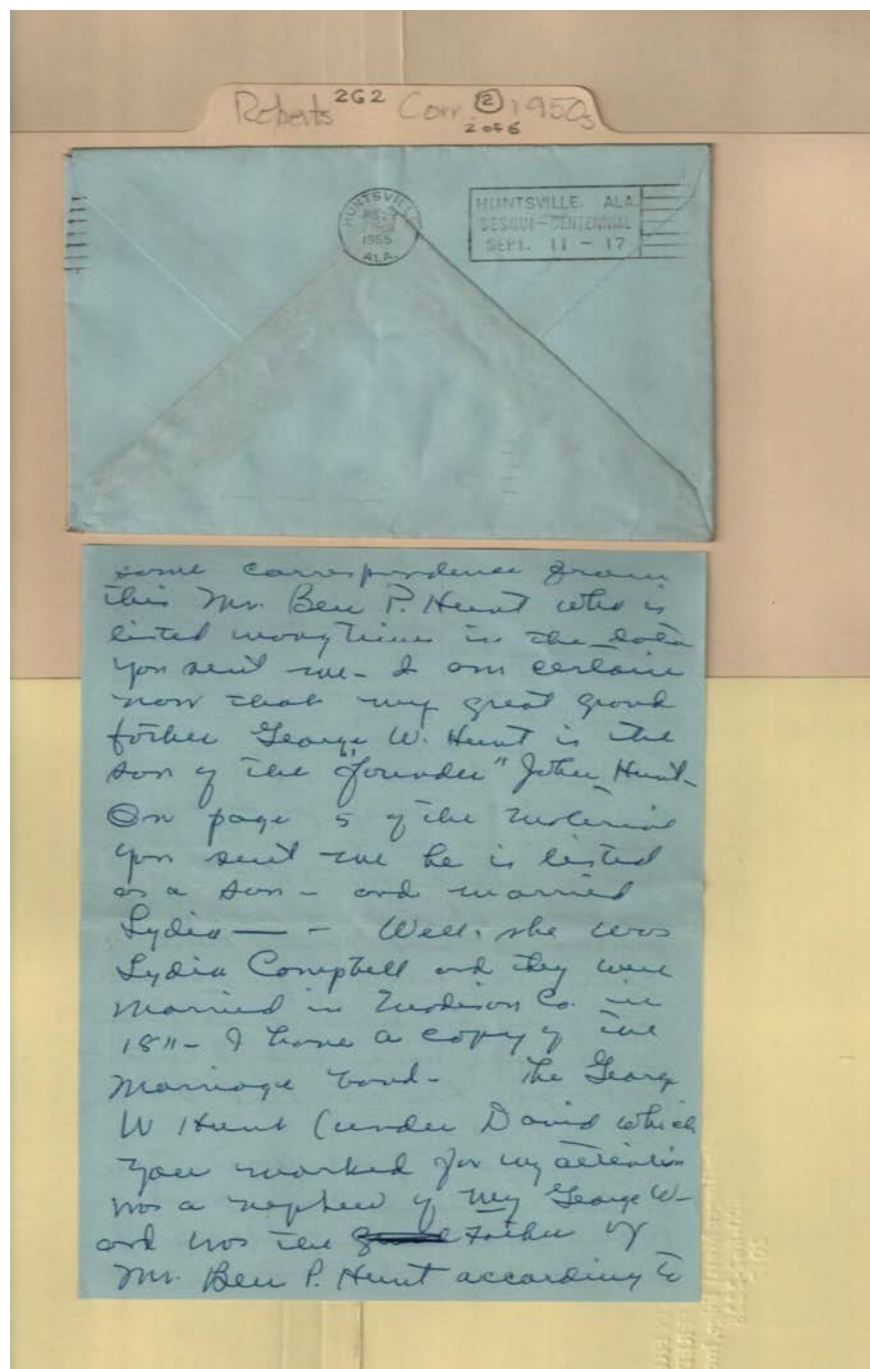 Roberts 2G2 Corr. 2 1950s
2 of 6
HUNTSVILLE
1955
ALA.
HUNTSVILLE ALA.
SESQUI-CENTENNIAL
SEPT. 11 - 17
some correspondence from
this Mr. Ben P. Hunt who is
listed many times in the data
you sent me - I am certain
now that my great grand
father George W. Hunt is the
son of the "founder" John Hunt -
On page 5 of the material
you sent me he is listed
as a son - and married
Lydia — - Well, she was
Lydia Campbell and they were
married in Madison Co. in
1811 - I have a copy of the
marriage bond - The George
W Hunt (under David which
you marked for my attention
was a nephew of my George W -
and was the father of
Mr. Ben P. Hunt according to